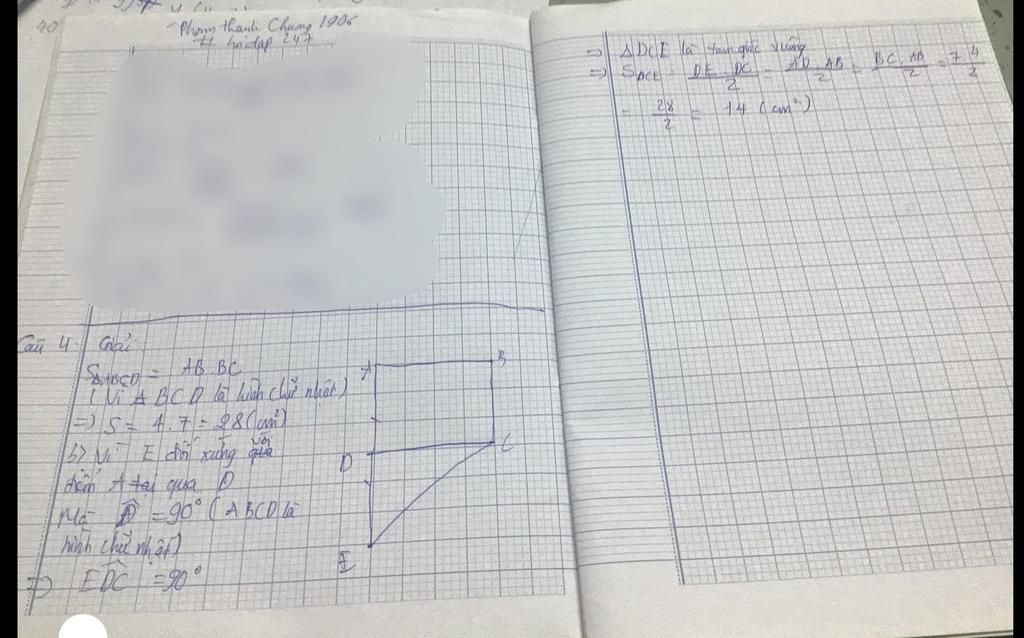 Phạm Thanh Chương 1908
# hoidap 247
Câu 4: Giải
S ABCD = AB.BC
(Vì ABCD là hình chữ nhật)
=> S = 4.7 = 28 (cm²)
b> Vì E đối xứng với
điểm A qua D
Mà D̂ = 90° (ABCD là
hình chữ nhật)
=> EDC = 90°
A
B
D
C
E
=> ΔDCE là tam giác vuông
=> S DCE = DE.DC/2 = AD.AB/2 = BC.AB/2 = 7.4/2
= 28/2 = 14 (cm²)